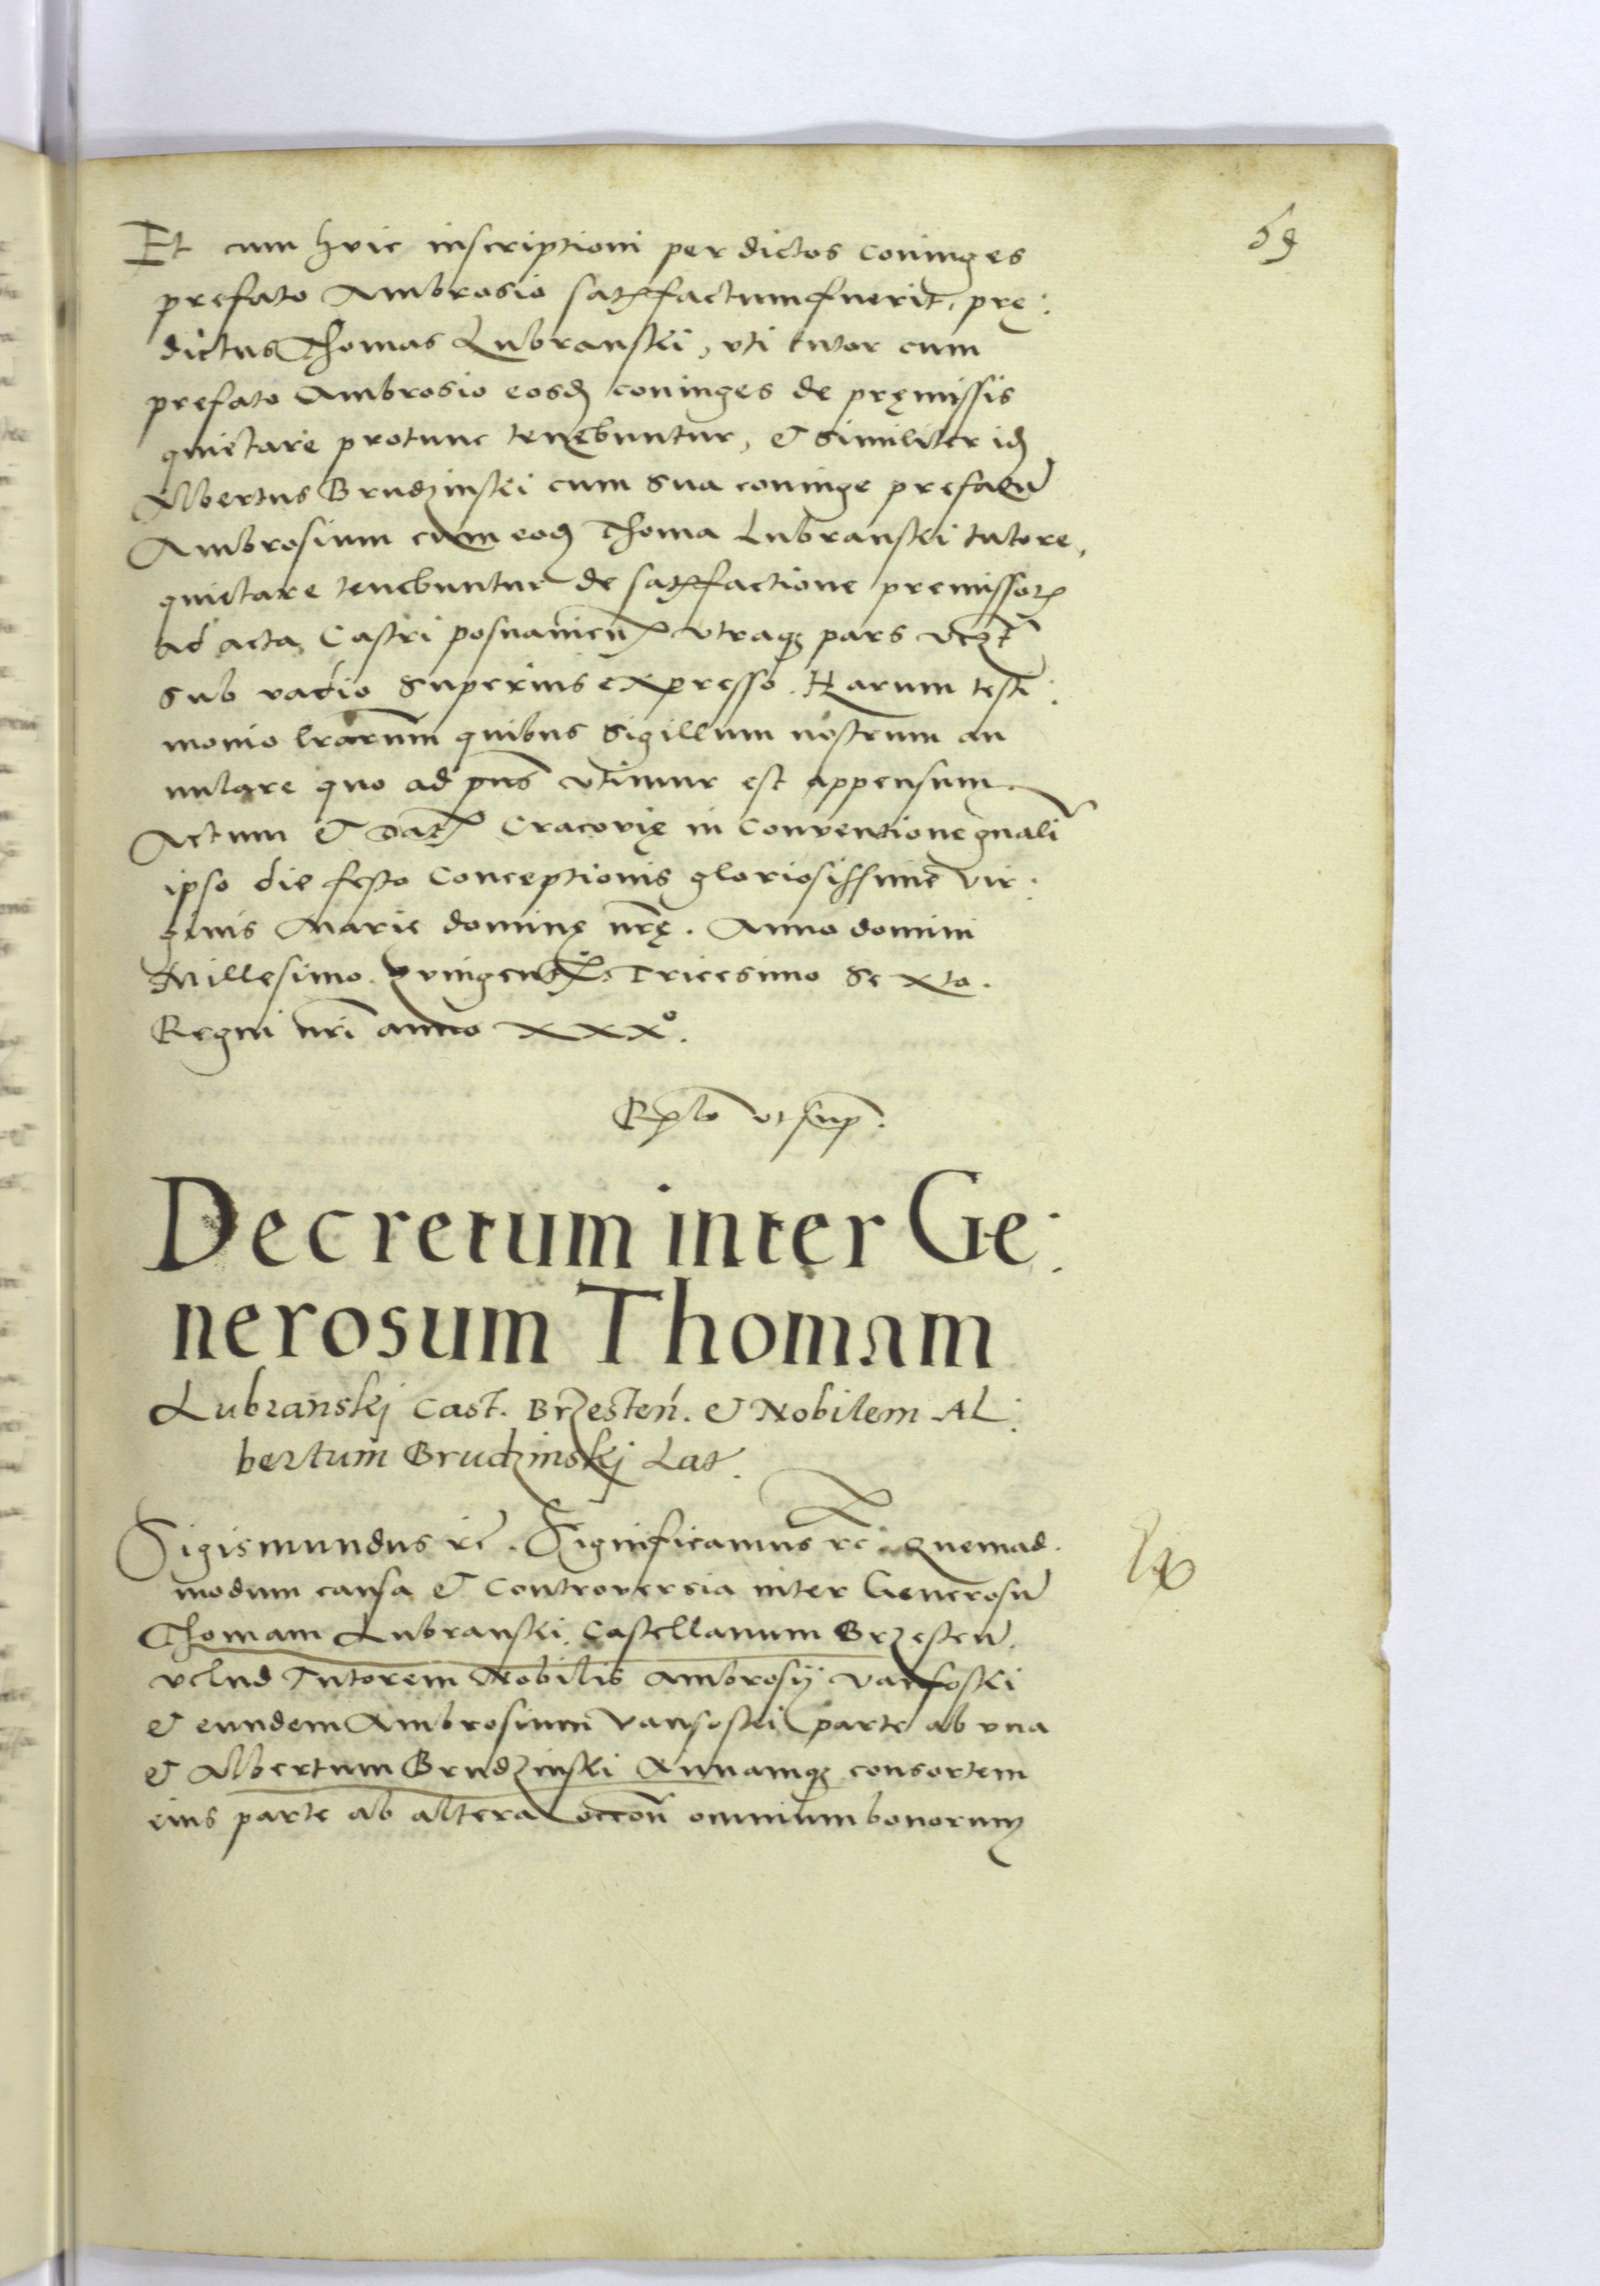 69
Et cum huic inscriptioni per dictos coniuges
prefato Ambrosio satisfactum fuerit, prę:
dictus Thomas Lubranski, vti tutor cum
prefato Ambrosio eosd coniuges de pręmissis
quietare protunc tenebuntur, & similiter id
Albertus Brudzinski cum sua coniuge prefatu
Ambrosium cum eod Thoma Lubranski tutore,
quietare tenebuntur de satisfactione premissor
ad acta Castri posnanien vtraq pars
sub vadio superius expresso. Harum testi:
monio lrarum quibus sigillum nostrum an
nulare quo ad pns vtimur est appensum.
Actum & Dat Cracovię in Conventione gnali
ipso die festo Conceptionis gloriosissime vir:
ginis Marie dominę nrę. Anno domini
Millesimo quingentmo Tricesimo Sexto.
Regni nri anno xxxo.
Rlo vt sup.
Decretum inter Ge:
nerosum Thomam
Lubranskj Cast. Brzesten. & Nobilem Al:
bertum Brudzinskj Lat.
Sigismundus rc. Significamus rc. Quemad.
modum causa & Controversia inter Generosu
Thomam Lubranski Castellanum Brzesten.
velud Tutorem Nobilis Ambrosij Vansoski
& eundem Ambrosium Vansoski parte ab vna
& Albertum Brudzinski Annamq consortem
eius parte ab altera occon omnium bonorum